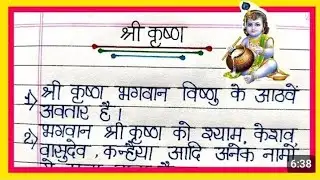 श्री कृष्णा
1) श्री कृष्णा भगवान विष्णु के आठवें
अवतार हैं।
2) भगवान श्री कृष्णा को श्याम, केशव,
वासुदेव, कन्हैया आदि अनेक नामों
6:38